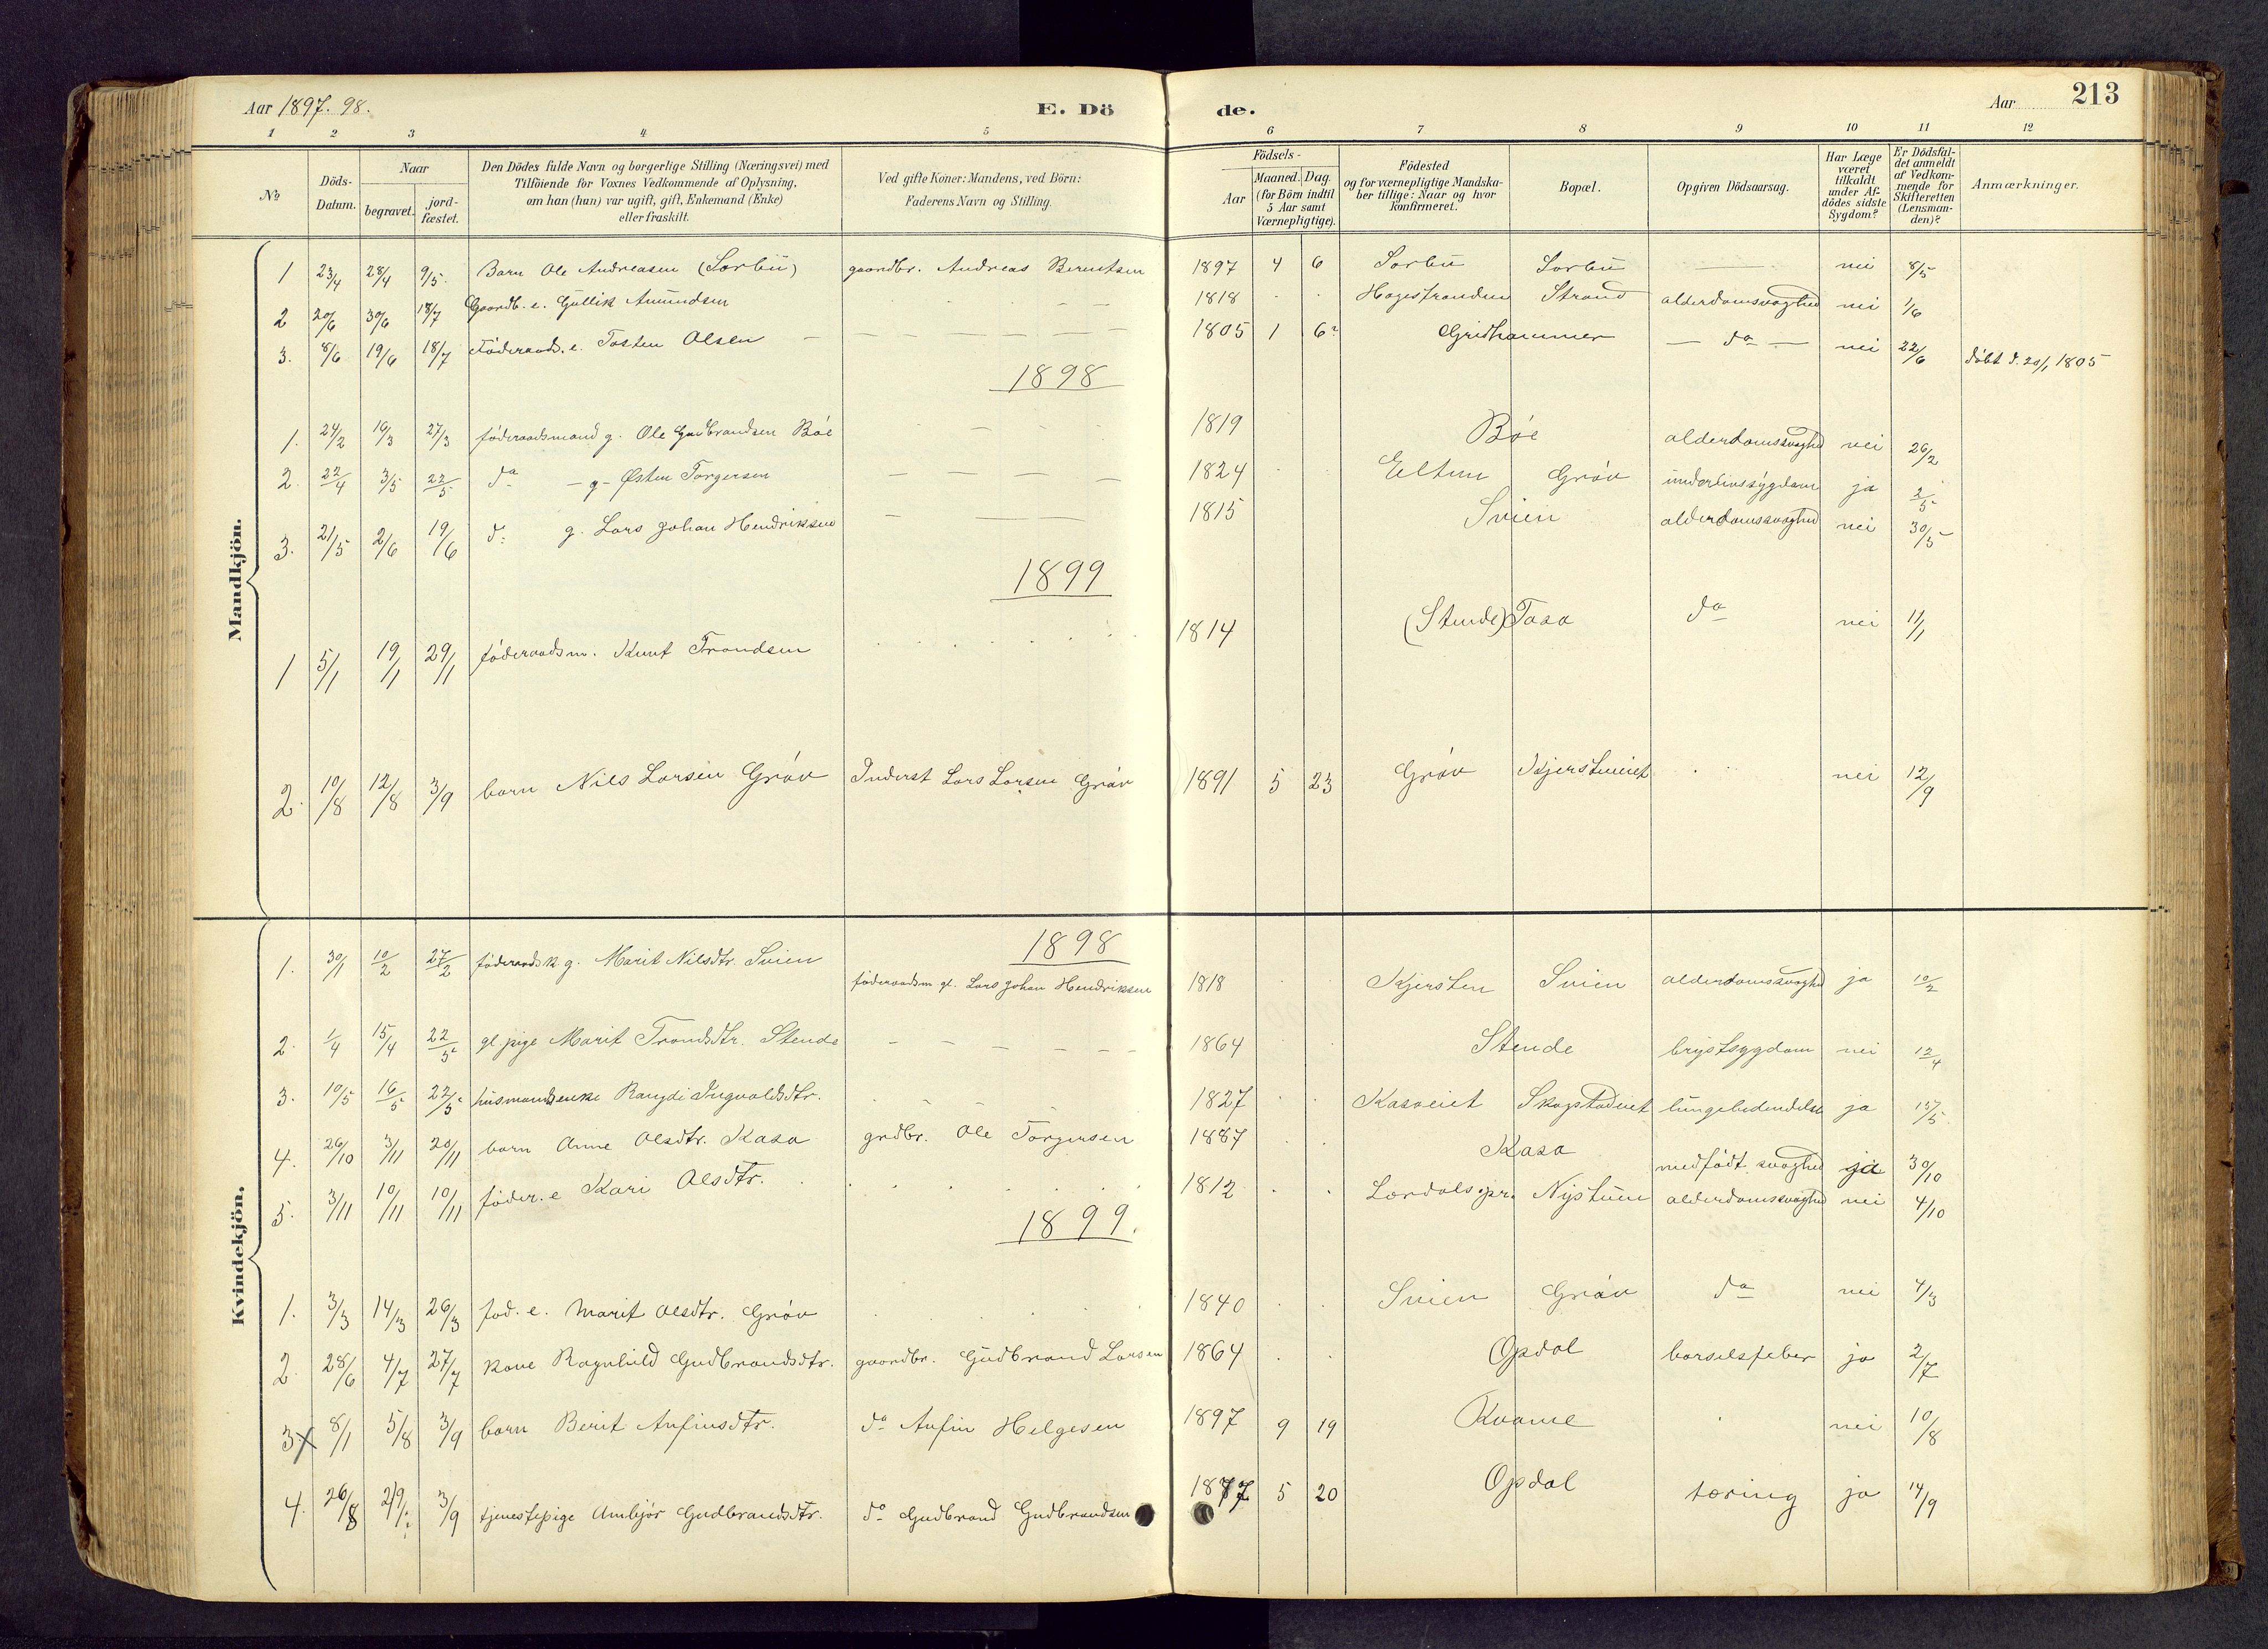 Aar 1897. 98.
E. Dö
de.
Aar
213
1 2 3 4 5 6 7 8 9 10 11 12
No
Döds-Datum.
Naar
begravet.
jord-fæstet.
Den Dödes fulde Navn og borgerlige Stilling (Næringsvei) med
Tilföiende for Voxnes Vedkommende af Oplysning,
om han (hun) var ugift, gift, Enkemand (Enke)
eller fraskilt.
Ved gifte Koner: Mandens, ved Börn:
Faderens Navn og Stilling.
Födsels-
Aar
Maaned. Dag.
(for Börn indtil
5 Aar samt
Værnepligtige).
Födested
og for værnepligtige Mandska-
ber tillige: Naar og hvor
konfirmeret.
Bopæl.
Opgiven Dödsaarsag.
Har Læge
været
tilkaldt
under Af-
dödes sidste
Sygdom?
Er Dödsfal-
det anmeldt
af Vedkom-
mende for
Skifteretten
(Lensman-
den)?
Anmærkninger.
Mandkjön.
1 23/4 28/4 9/5 Barn Ole Andreasen (Sorbü) gaardbr. Andreas Berntsen 1897 4 6 Sorbü Sorbü — nei 8/5
2 20/6 30/6 18/7 Gaardb. e. Güllik Amündsen 1818 Hagestranden Strand alderdomssvaghed nei 1/6
3. 8/6 19/6 18/7 Föderaads. e. Tosten Olsen 1805 1 6? Gridhammer — do — nei 22/6 döbt d. 20/1 1805
1898
1. 24/2 16/3 27/3 föderaadsmand g. Ole Gudbrandsen Böe 1819 Böe alderdomssvaghed nei 26/2
2. 22/4 3/5 22/5 do - g - Østen Torgersen 1824 Eltun Gröv underlivssÿgdom ja 2/5
3. 21/5 2/6 19/6 do g. Lars Johan Hendriksen 1815 Svien alderdomssvaghed nei 30/5
1899
1 5/1 19/1 29/1 föderaadsm. Knut Trondsen 1814 (Stende) Tasa do nei 11/1
2. 10/8 12/8 3/9 barn Nils Larsen Gröv Inderst Lars Larsen Gröv 1891 5 23 Gröv Kjerstuveiet nei 12/9
Kvindekjön.
1898
1. 30/1 10/2 27/2 föderaadsk g. Marit Nilsdtr. Svien föderaadsm gl. Lars Johan Hendriksen 1818 Kjersten Svien alderdomssvaghed ja 10/2
2. 1/4 15/4 22/5 gl. pige Marit Trondsdtr. Stende 1864 Stende brystsygdom nei 12/4
3. 10/5 16/5 22/5 hüsmandsenke Rangdi Ingvaldsdtr. 1827 Kasaeiet Skogstadeiet lüngebedendelse ja 15/5
4. 26/10 3/11 20/11 barn Anne Olsdtr. Kasa grdbr. Ole Torgersen 1887 Kasa medfödt svaghed ja 30/10
5. 3/11 10/11 10/11 föder. e Kari Olsdtr. 1812 Lærdals pr. Nÿstüen alderdomssvaghed nei 4/10
1899.
1. 3/3 14/3 26/3 föd. e. Marit Olsdtr. Gröv 1840 Svien Gröv do nei 4/3
2 28/6 4/7 27/7 kone Ragnhild Gudbrandsdtr. gaardbr. Güdbrand Larsen 1864 Opdal barselsfeber ja 2/7
3 x 8/1 5/8 3/9 barn Berit Anfinsdtr. do Anfin Helgesen 1897 9 19 Kvame nei 10/8
4. 26/8 3/9 tjenestepige Ambjör Gudbrandsdtr. do Gudbrand Gudbrandsen 1877 5 20 Opdal tæring ja 14/9